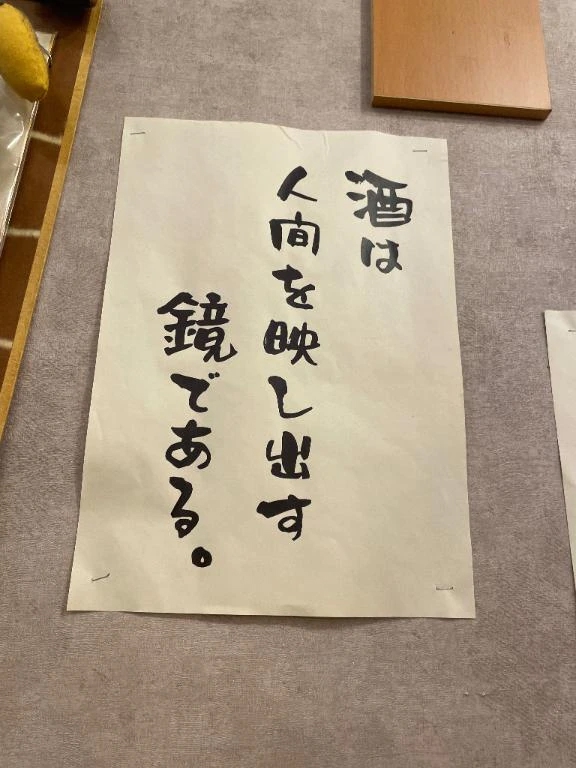 酒は
人間を映し出す
鏡である。